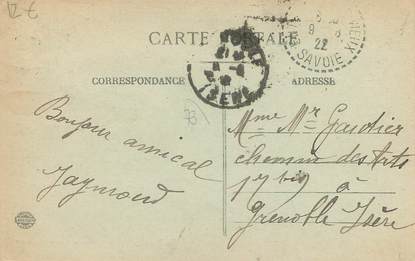 12€
CARTE POSTALE
CORRESPONDANCE
ADRESSE
9
22
SAVOIE
ISERE
73
Bonjour amical
Raymond
Mme Mr Gautier
chemin des Arts
17 bis à
Grenoble Isère